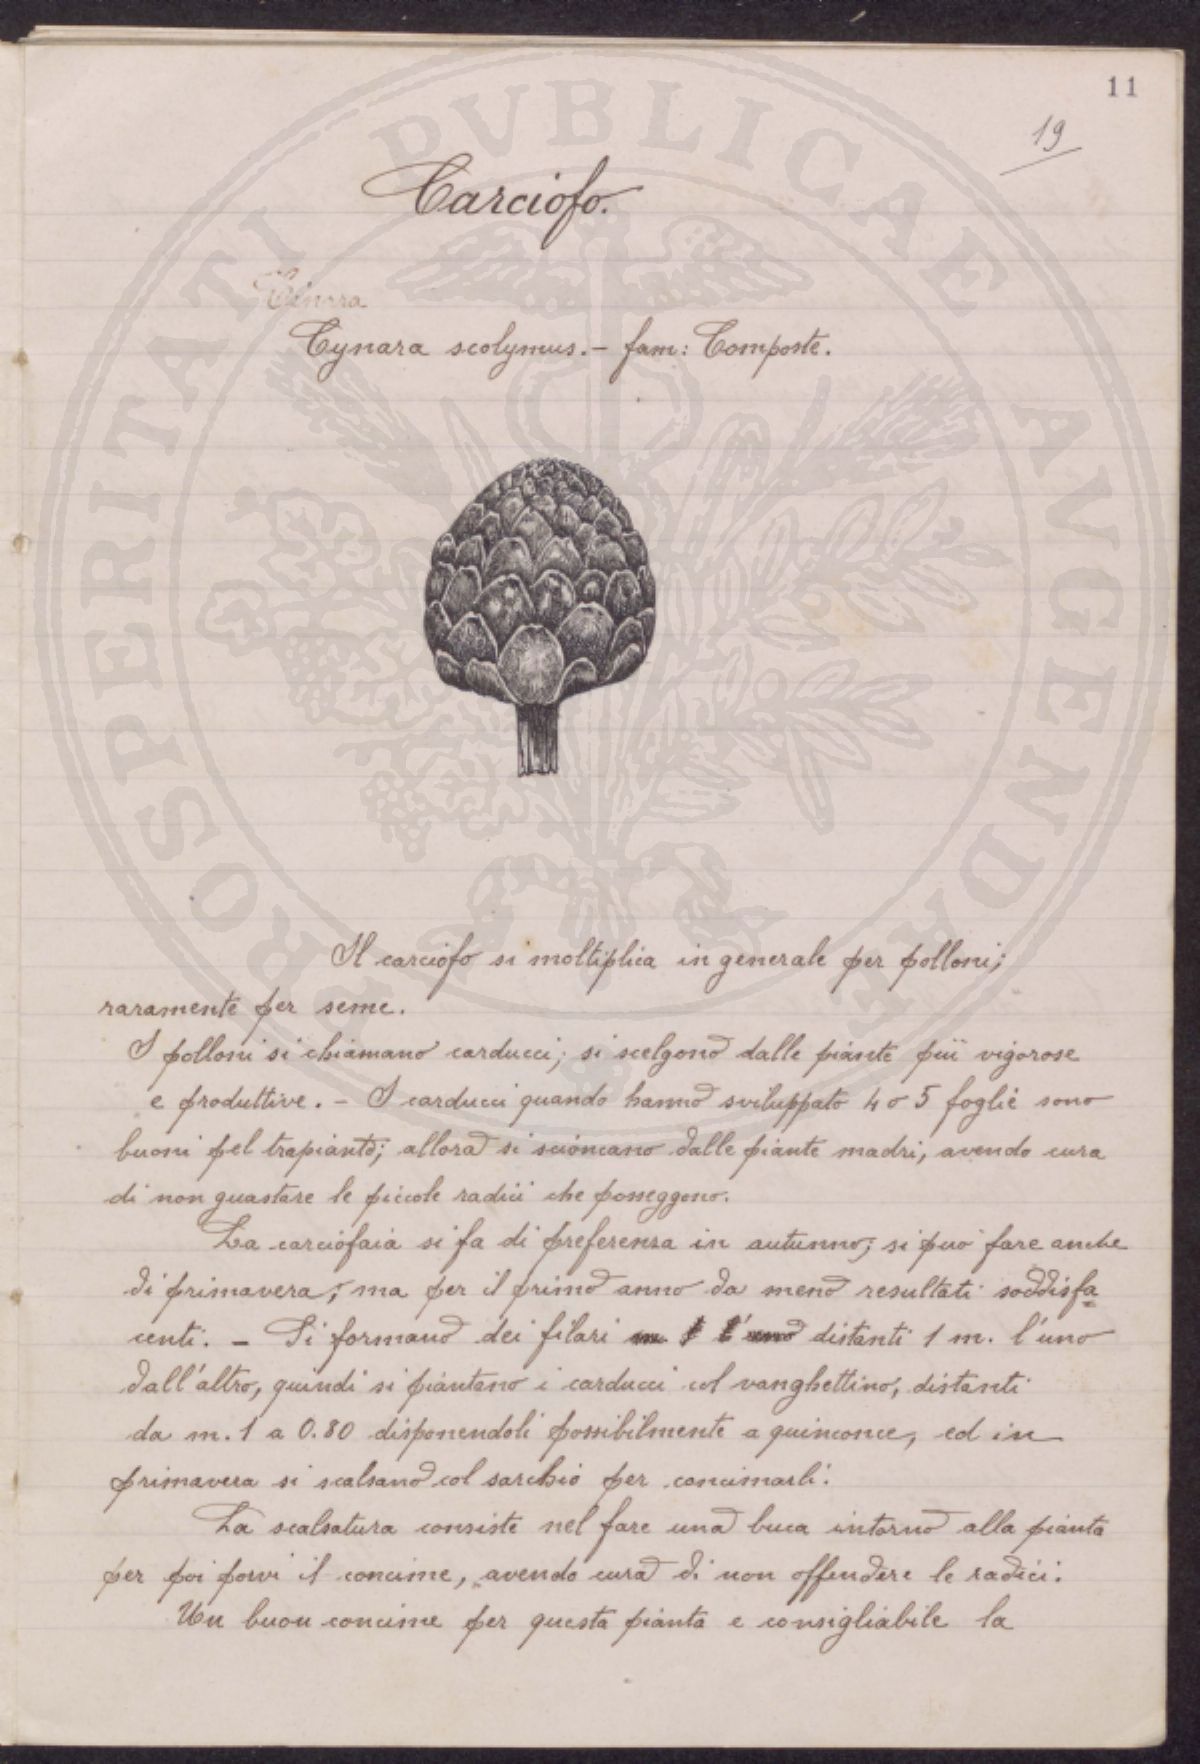 11
19
Carciofo.
Cinara
Cynara scolymus. – fam: Composte.
Il carciofo si moltiplica in generale per polloni;
raramente per seme.
I polloni si chiamano carducci; si scelgono dalle piante più vigorose
e produttive. – I carducci quando hanno sviluppato 4 o 5 foglie sono
buoni pel trapianto; allora si scioncano dalle piante madri, avendo cura
di non guastare le piccole radici che posseggono.
La carciofaia si fa di preferenza in autunno; si può fare anche
di primavera; ma per il primo anno da meno resultati soddisfa-
centi. – Si formano dei filari distanti 1 m. l'uno
dall'altro, quindi si piantano i carducci col vanghettino, distanti
da m. 1 a 0.80 disponendoli possibilmente a quinconce, ed in
primavera si scalsano col sarchio per concimarli.
La scalsatura consiste nel fare una buca intorno alla pianta
per poi porvi il concime, avendo cura di non offendere le radici.
Un buon concime per questa pianta e consigliabile la
PROSPERITATI PVBLICAE AVGENDAE